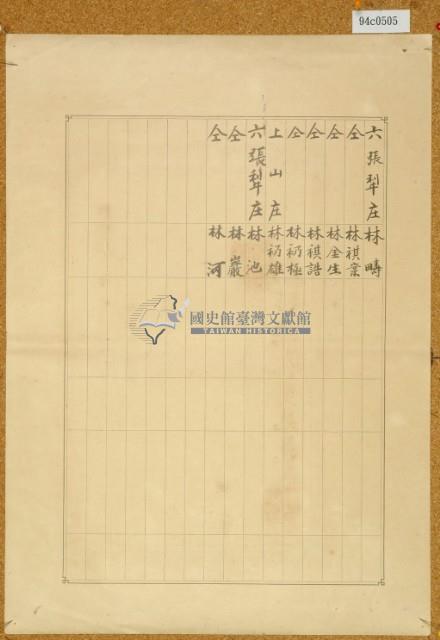 94c0505
六張犁庄 林疇
仝 林祺業
仝 林金生
仝 林祺誥
仝 林礽極
上山庄 林礽雄
六張犁庄 林池
仝 林巖
仝 林河
國史館臺灣文獻館
TAIWAN HISTORICA